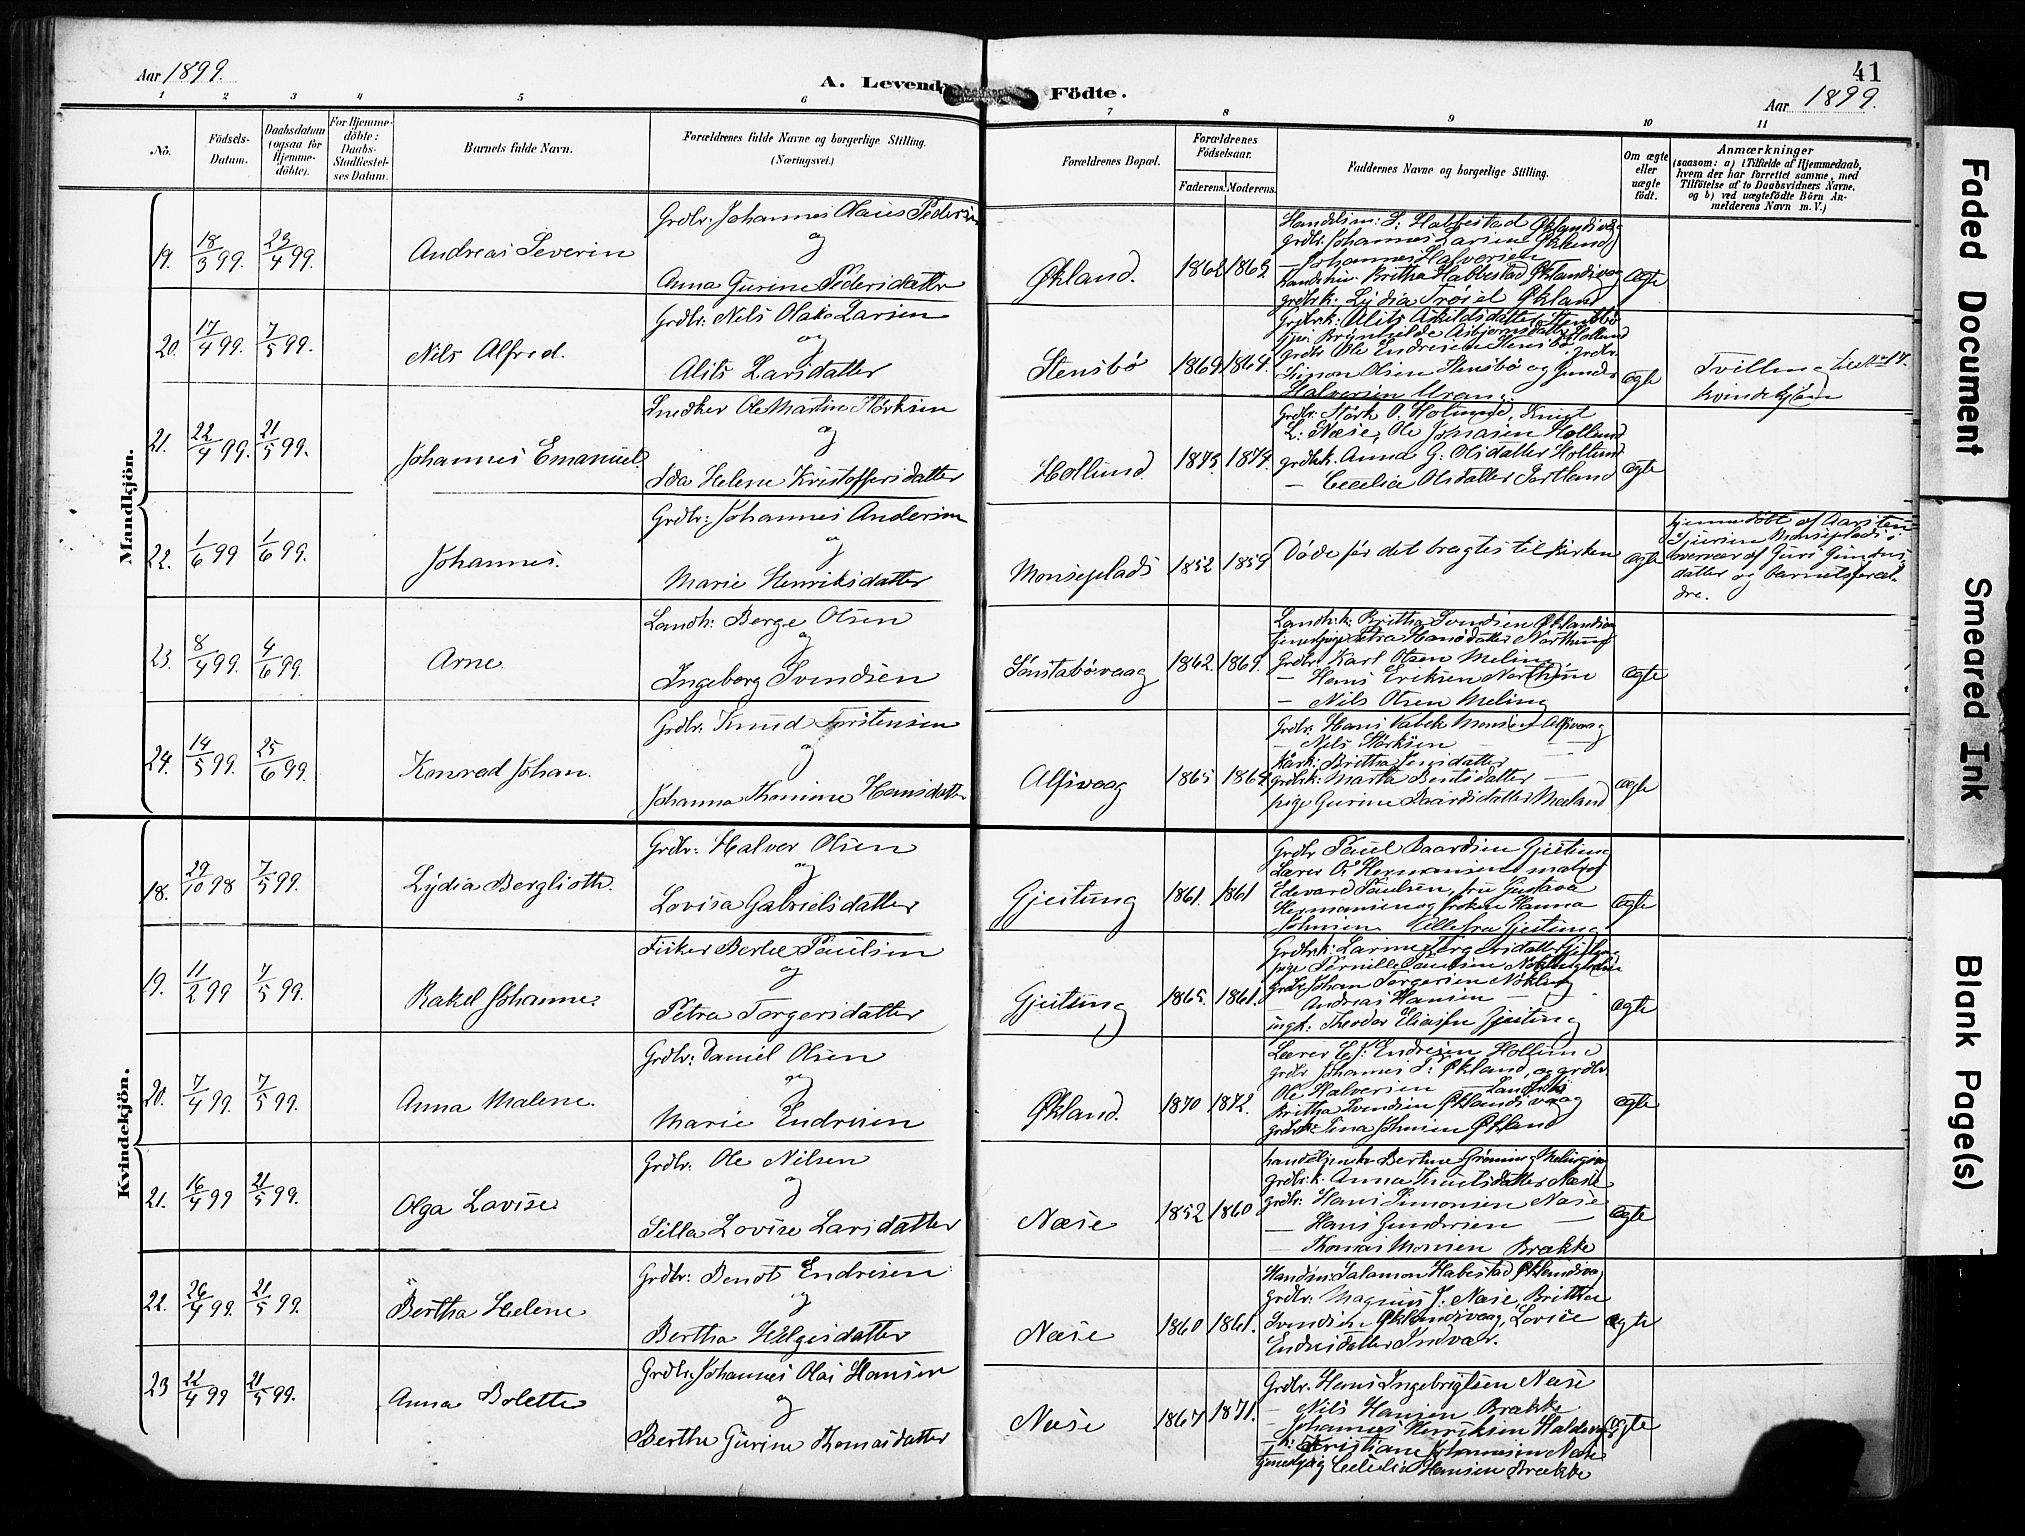 Aar 1899.
A. Levende Födte.
41
Aar 1899.
1 2 3 4 5 6 7 8 9 10 11
No.
Födsels-Datum.
Daabsdatum (ogsaa för Hjemmedöbte).
For Hjemmedöbte: Daabs-Stadfæstelses Datum.
Barnets fulde Navn.
Forældrenes fulde Navne og borgerlige Stilling.
(Næringsvei.)
Forældrenes Bopæl.
Forældrenes Födselsaar.
Faderens. Moderens.
Faddernes Navne og borgerlige Stilling.
Om ægte eller uægte födt.
Anmærkninger
(saasom: a) i Tilfælde af Hjemmedaab, hvem der har forrettet samme, med Tilföielse af to Daabsvidners Navne, og b) ved uægtefödte Börn Anmelderens Navn m. V.)
Mandkjön.
19. 18/3 99. 23/4 99.
Andreas Severin
Grdbr. Johannes Olaus Pedersen
og
Anna Gurine Pedersdatter
Økland. 1862 1862
grdbr. Johannes Larsen Økland
— Johannes Halvorsen
grdbrk. Lydia Økland
ægte
20. 17/4 99. 7/5 99.
Nils Alfred.
Grdbr: Nils Olai Larsen
og
Alits Larsdatter
Stensbø 1869 1864.
grdbr Ole Endresen Stensbø
Simon Olsen Stensbø og Gunder
Halvorsen Uran.
ægte
Tvilling
kvindekjøn
21. 22/4 99. 21/5 99.
Johannes Emanuel.
Snedker Ole Martin Størksen
og
Ida Helene Kristoffersdatter
Hollund. 1875 1874.
L: Næse, Ole Johnsen Hollund
grdbrk. Anna G. Olsdatter Hollund
— Cecelia Olsdatter
ægte
22. 1/6 99 1/6 99.
Johannes.
Grdbr: Johannes Andersen
og
Marie Henriksdatter
Monseplads 1852 1859
Døde før det bragtes til kirken
ægte
hjemmedöbt af
overvær af Guri
datter og barnets foræl-
dre.
23. 8/4 99. 4/6 99.
Arne.
Landh: Berge Olsen
og
Ingeborg Svendsen
Sønstabøvaag 1862 1869.
Landh.k: Britha Svendsen Øklandsvaag
Grdbr. Karl Olsen Meling
— Hans Eriksen Northun
— Nils Olsen Meling
ægte
24. 14/5 99. 25/6 99.
Konrad Johan.
Grdbr. Knud Torstensen
og
Johanna Thomine Hansdatter
Alfsvaag 1865 1864
— Nils Størksen —
grdbrk: Marta Bentsdatter —
pige Gurine Baardsdatter Mæland
ægte
Kvindekjön.
18. 29/10 98 7/5 99.
Lydia Berglioth.
Grdbr: Halvor Olsen
og
Lovisa Gabrielsdatter
Gjeitung 1861. 1861
Grdbr Paul Baardsen Gjeitung
Lærer O. Hermansen,
Edevard Paulsen, fru Gustava
Hermansen og frøken Hanna
Johnsen. Alle fra Gjeitung
ægte
19. 11/2 99 7/5 99.
Rakel Johanne.
Fisker Bertel Paulsen
og
Petra Torgersdatter
Gjeitung 1865. 1861.
grdbr Johan Torgersen Nøkling
— Andreas Hansen —
ungk: Theodor Eliassen Gjeitung
ægte
20. 7/4 99. 7/5 99.
Anna Malene.
Grdbr: Daniel Olsen
og
Marie Endresen
Økland. 1870 1872.
Lærer E. Endresen Hollund
grdbr Johannes Økland, og grdbr.
Ole Halvorsen
Britha Svendsen Øklandsvaag
grdbrk: Sina Johnsen Økland
ægte
21. 16/4 99 21/5 99.
Olga Lovise
Grdbr. Ole Nilsen
og
Silla Lovise Larsdatter
Næse 1852 1860
grdbrk: Anna Knutsdatter Næse
grdbr: Hans Simonsen Næse
— Hans Gundersen —
— Thomas Monsen Brække
ægte
22. 26/4 99. 21/5 99.
Bertha Helene
Grdbr: Bendt Endresen
og
Bertha Helgesdatter
Næse 1860 1861.
Salamon Habestad Øklandsvaag
grdbr: Magnus J. Næse, Britha
Svendsen Øklandsvaag, Lovise
Endresdatter Indvær.
ægte
23 22/4 99 21/5 99.
Anna Bolette
Grdbr. Johannes Olai Hansen
og
Berthe Gurine Thomasdatter
Næse 1867 1871.
Grdbr. Hans Ingebrigtsen Næse
— Nils Hansen Brække
— Johannes Henriksen
Kristiane Johannesen Næse
Cecelie Hansen Brække
ægte
Faded Document
Smeared Ink
Blank Page(s)